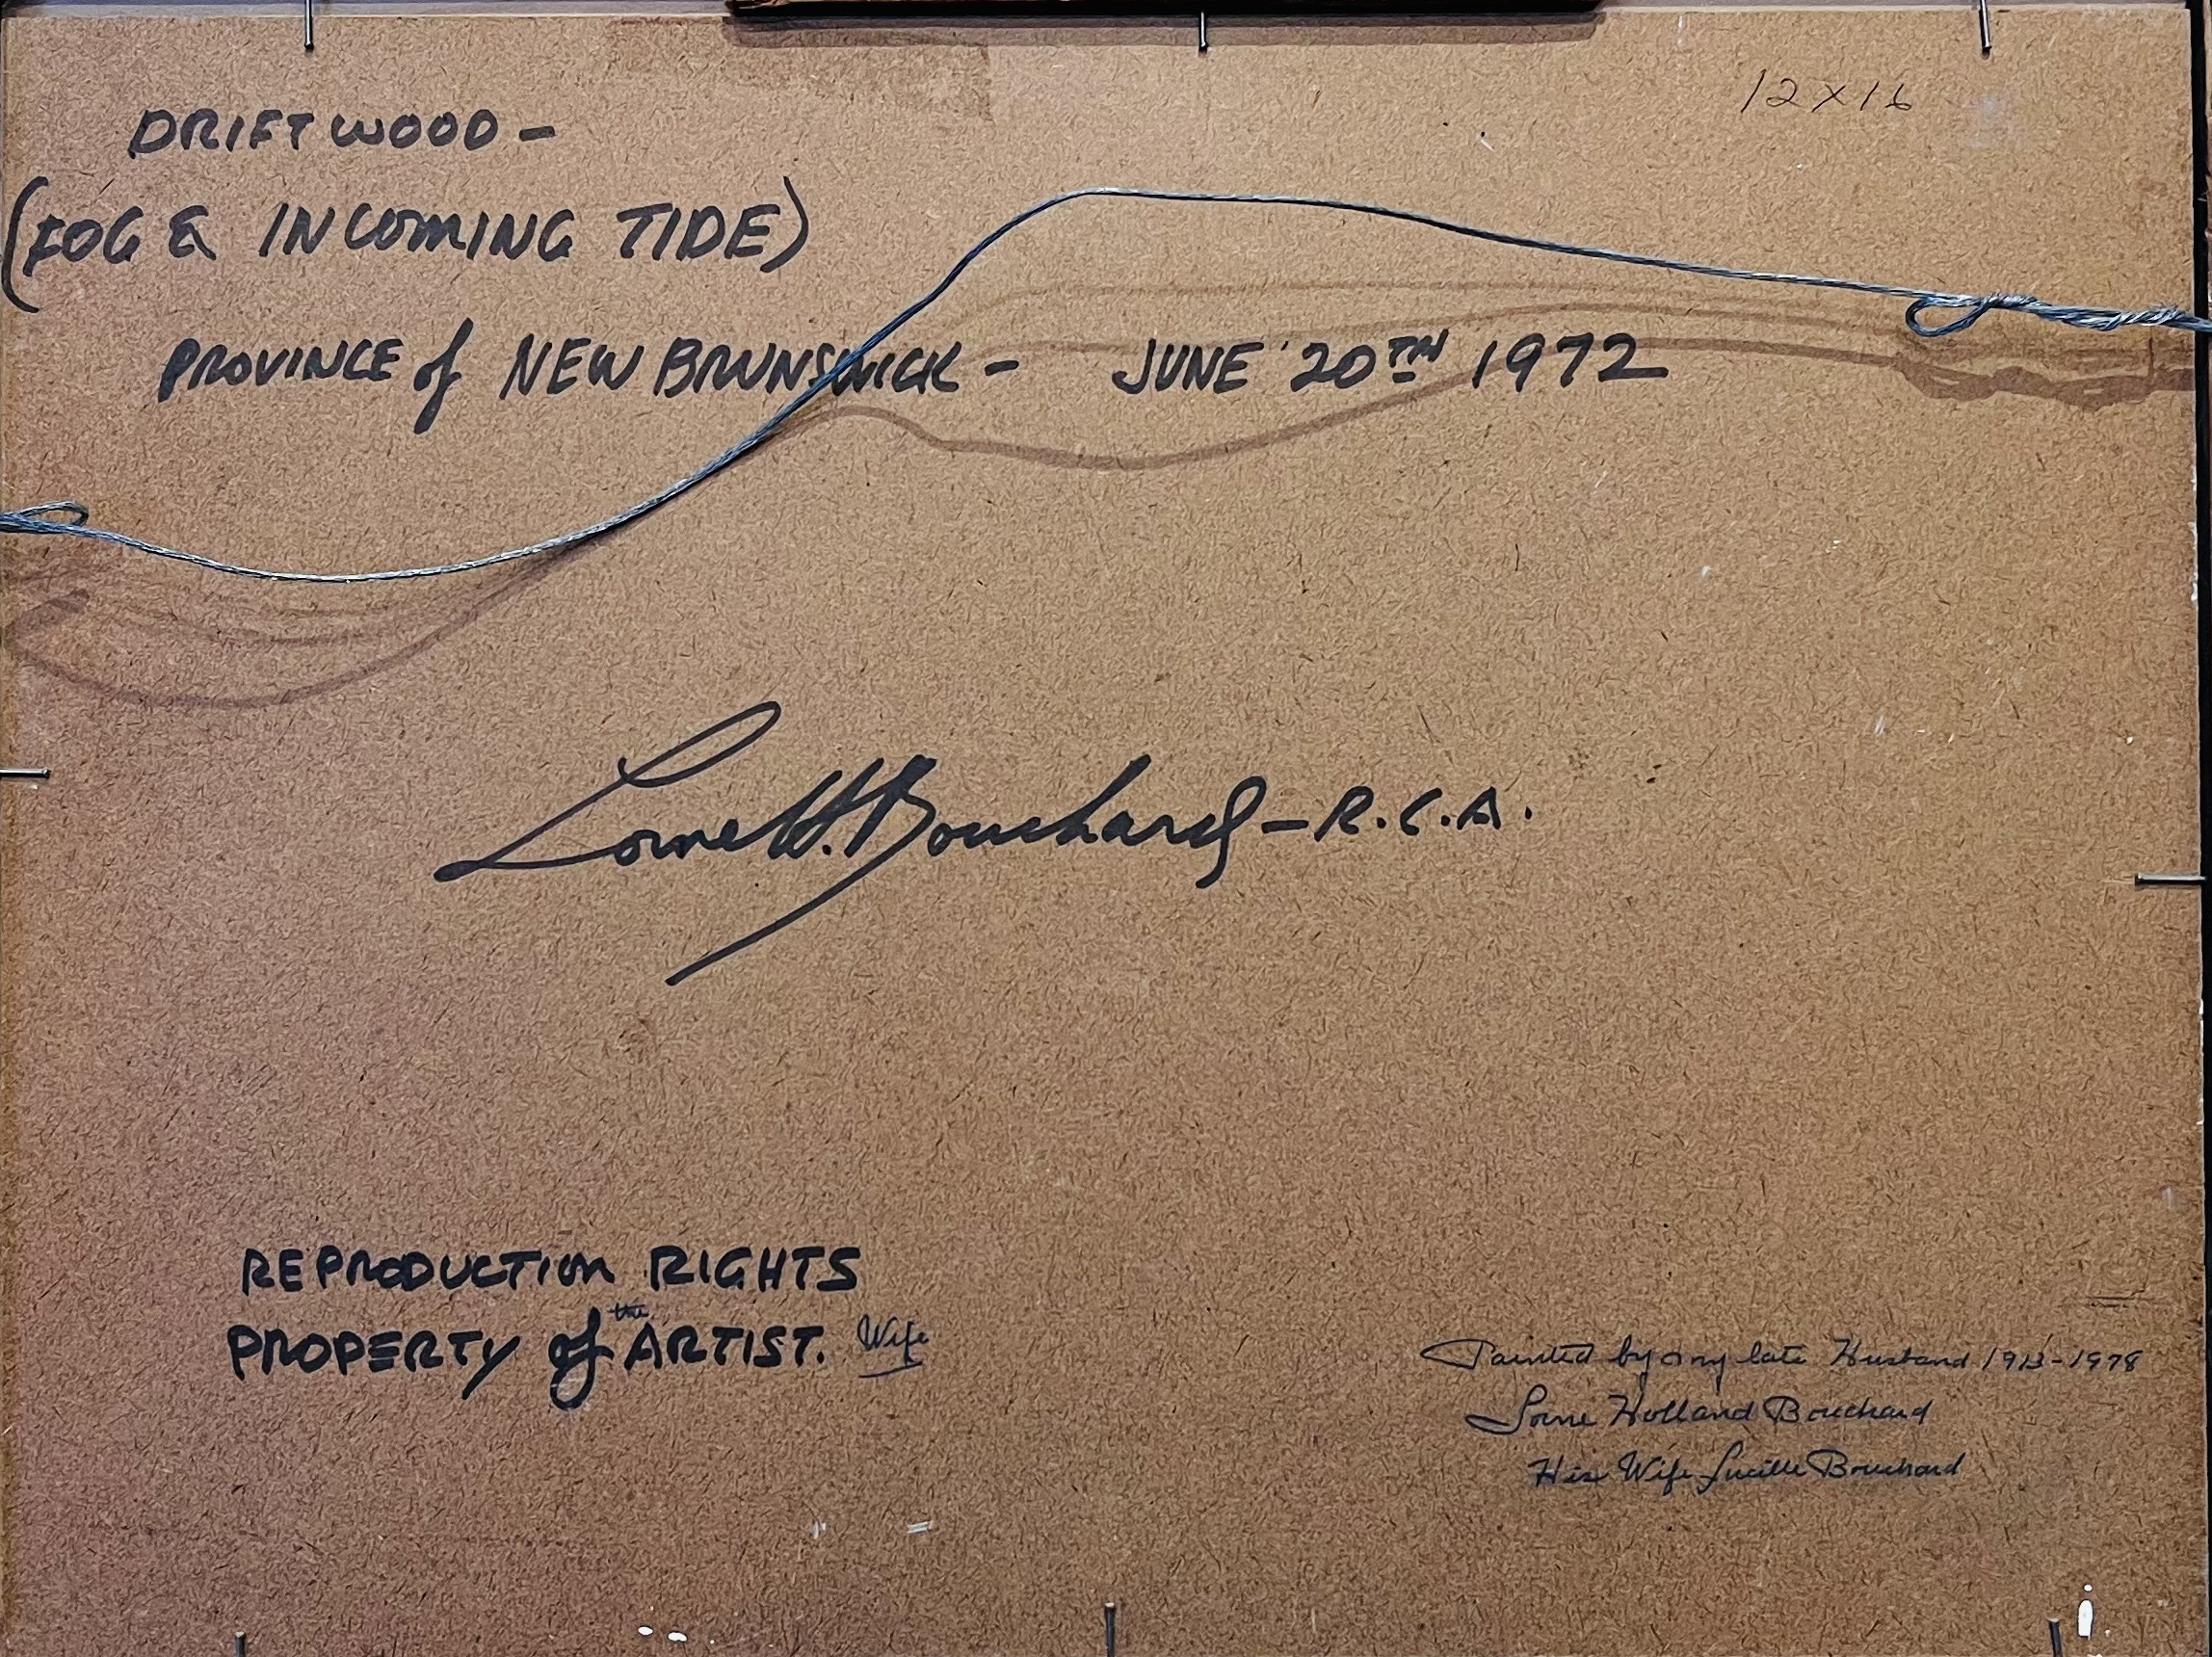 12X16
DRIFTWOOD -
(FOG & INCOMING TIDE)
PROVINCE of NEW BRUNSWICK - JUNE 20TH 1972
Lorne H. Bouchard - R.C.A.
REPRODUCTION RIGHTS
PROPERTY of the ARTIST. Wife
Painted by my late Husband 1913-1978
Lorne Holland Bouchard
His Wife Lucille Bouchard